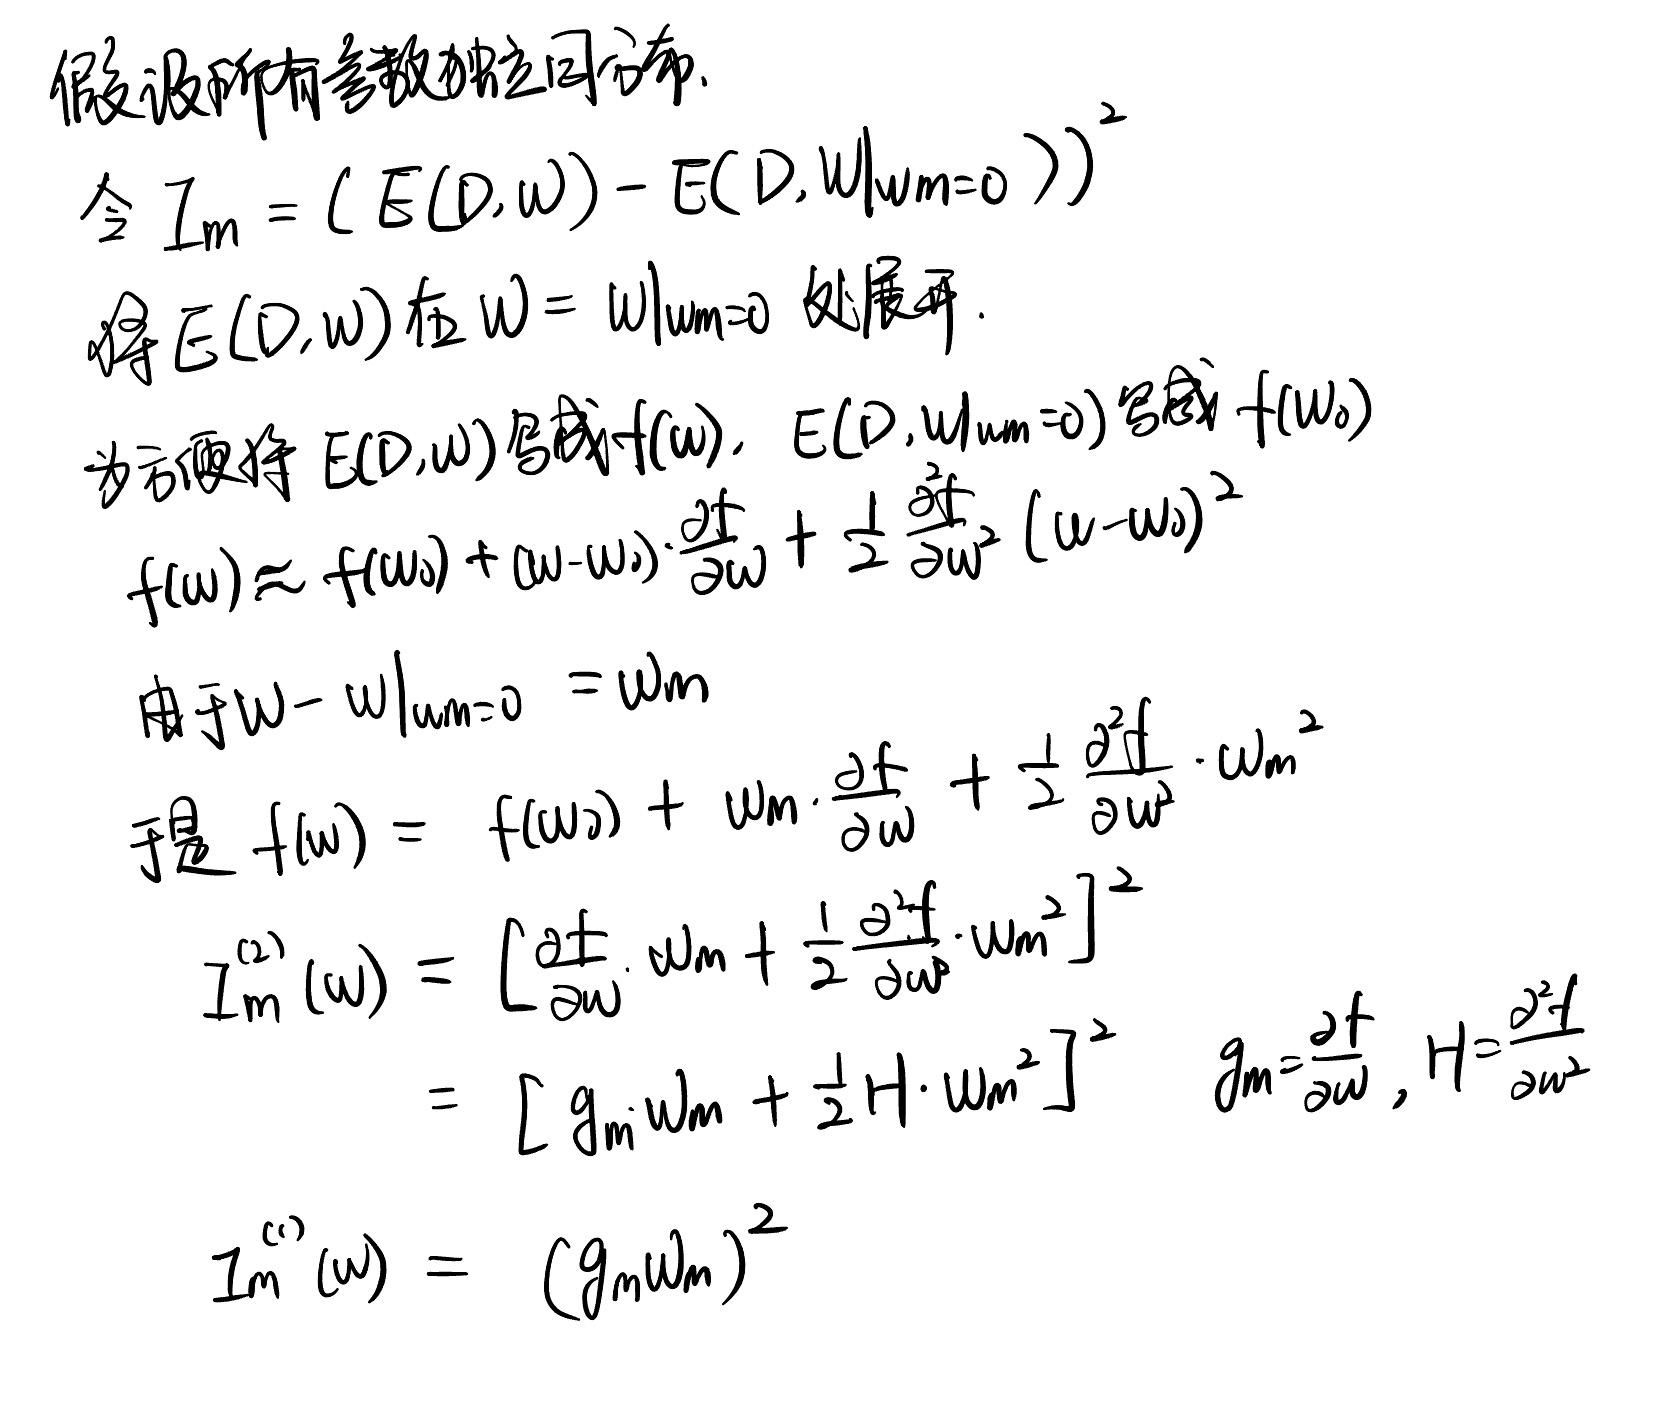 假设所有参数独立同分布.
令 I_m = (E(D,W) - E(D,W|w_m=0))^2
将 E(D,W) 在 W = W|w_m=0 处展开.
为方便将 E(D,W) 写成 f(w), E(D,W|w_m=0) 写成 f(w_0)
f(w) ≈ f(w_0) + (w-w_0)·∂f/∂w + 1/2 ∂²f/∂w² (w-w_0)^2
由于 W - W|w_m=0 = w_m
于是 f(w) = f(w_0) + w_m·∂f/∂w + 1/2 ∂²f/∂w² · w_m²
I_m^(2)(w) = [∂f/∂w · w_m + 1/2 ∂²f/∂w² · w_m²]^2
= [g_m·w_m + 1/2 H·w_m²]^2 g_m = ∂f/∂w, H = ∂²f/∂w²
I_m^(1)(w) = (g_m w_m)^2